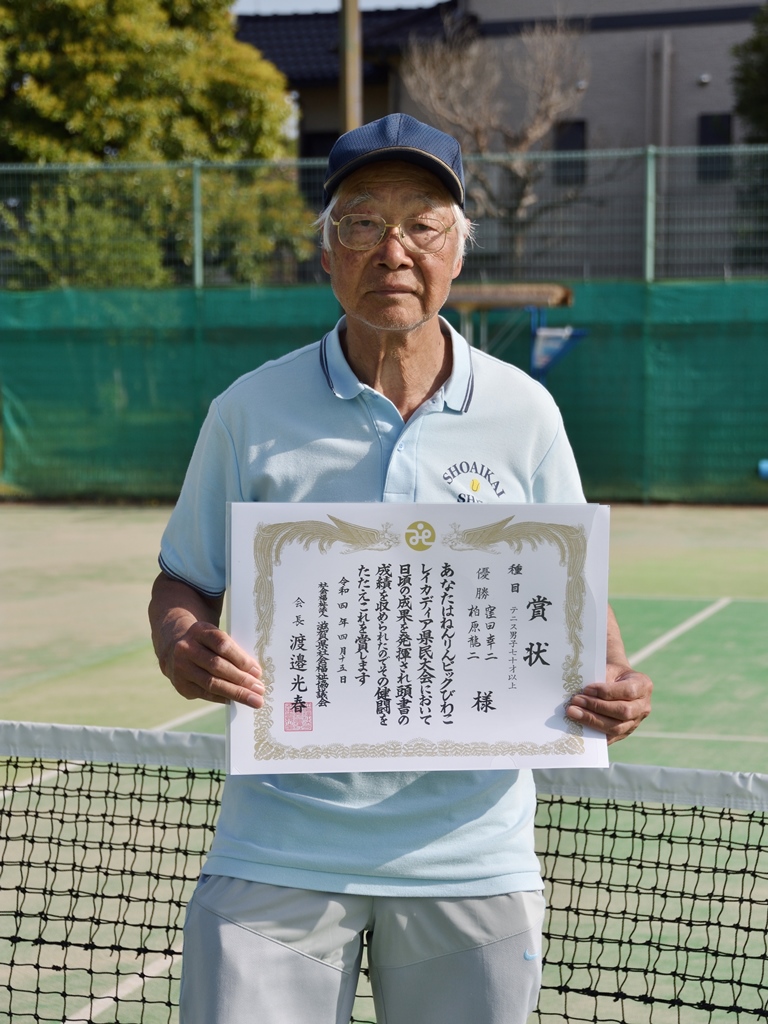 SHOAIKAI
賞状
種目 テニス男子七十才以上
優勝 窪田幸二
柏原龍二
様
あなたはねんりんピックびわこ
レイカディア県民大会において
日頃の成果を発揮され頭書の
成績を収められたのでその健闘を
たたえこれを賞します
令和四年四月十五日
社会福祉法人 滋賀県社会福祉協議会
会長 渡邉光春